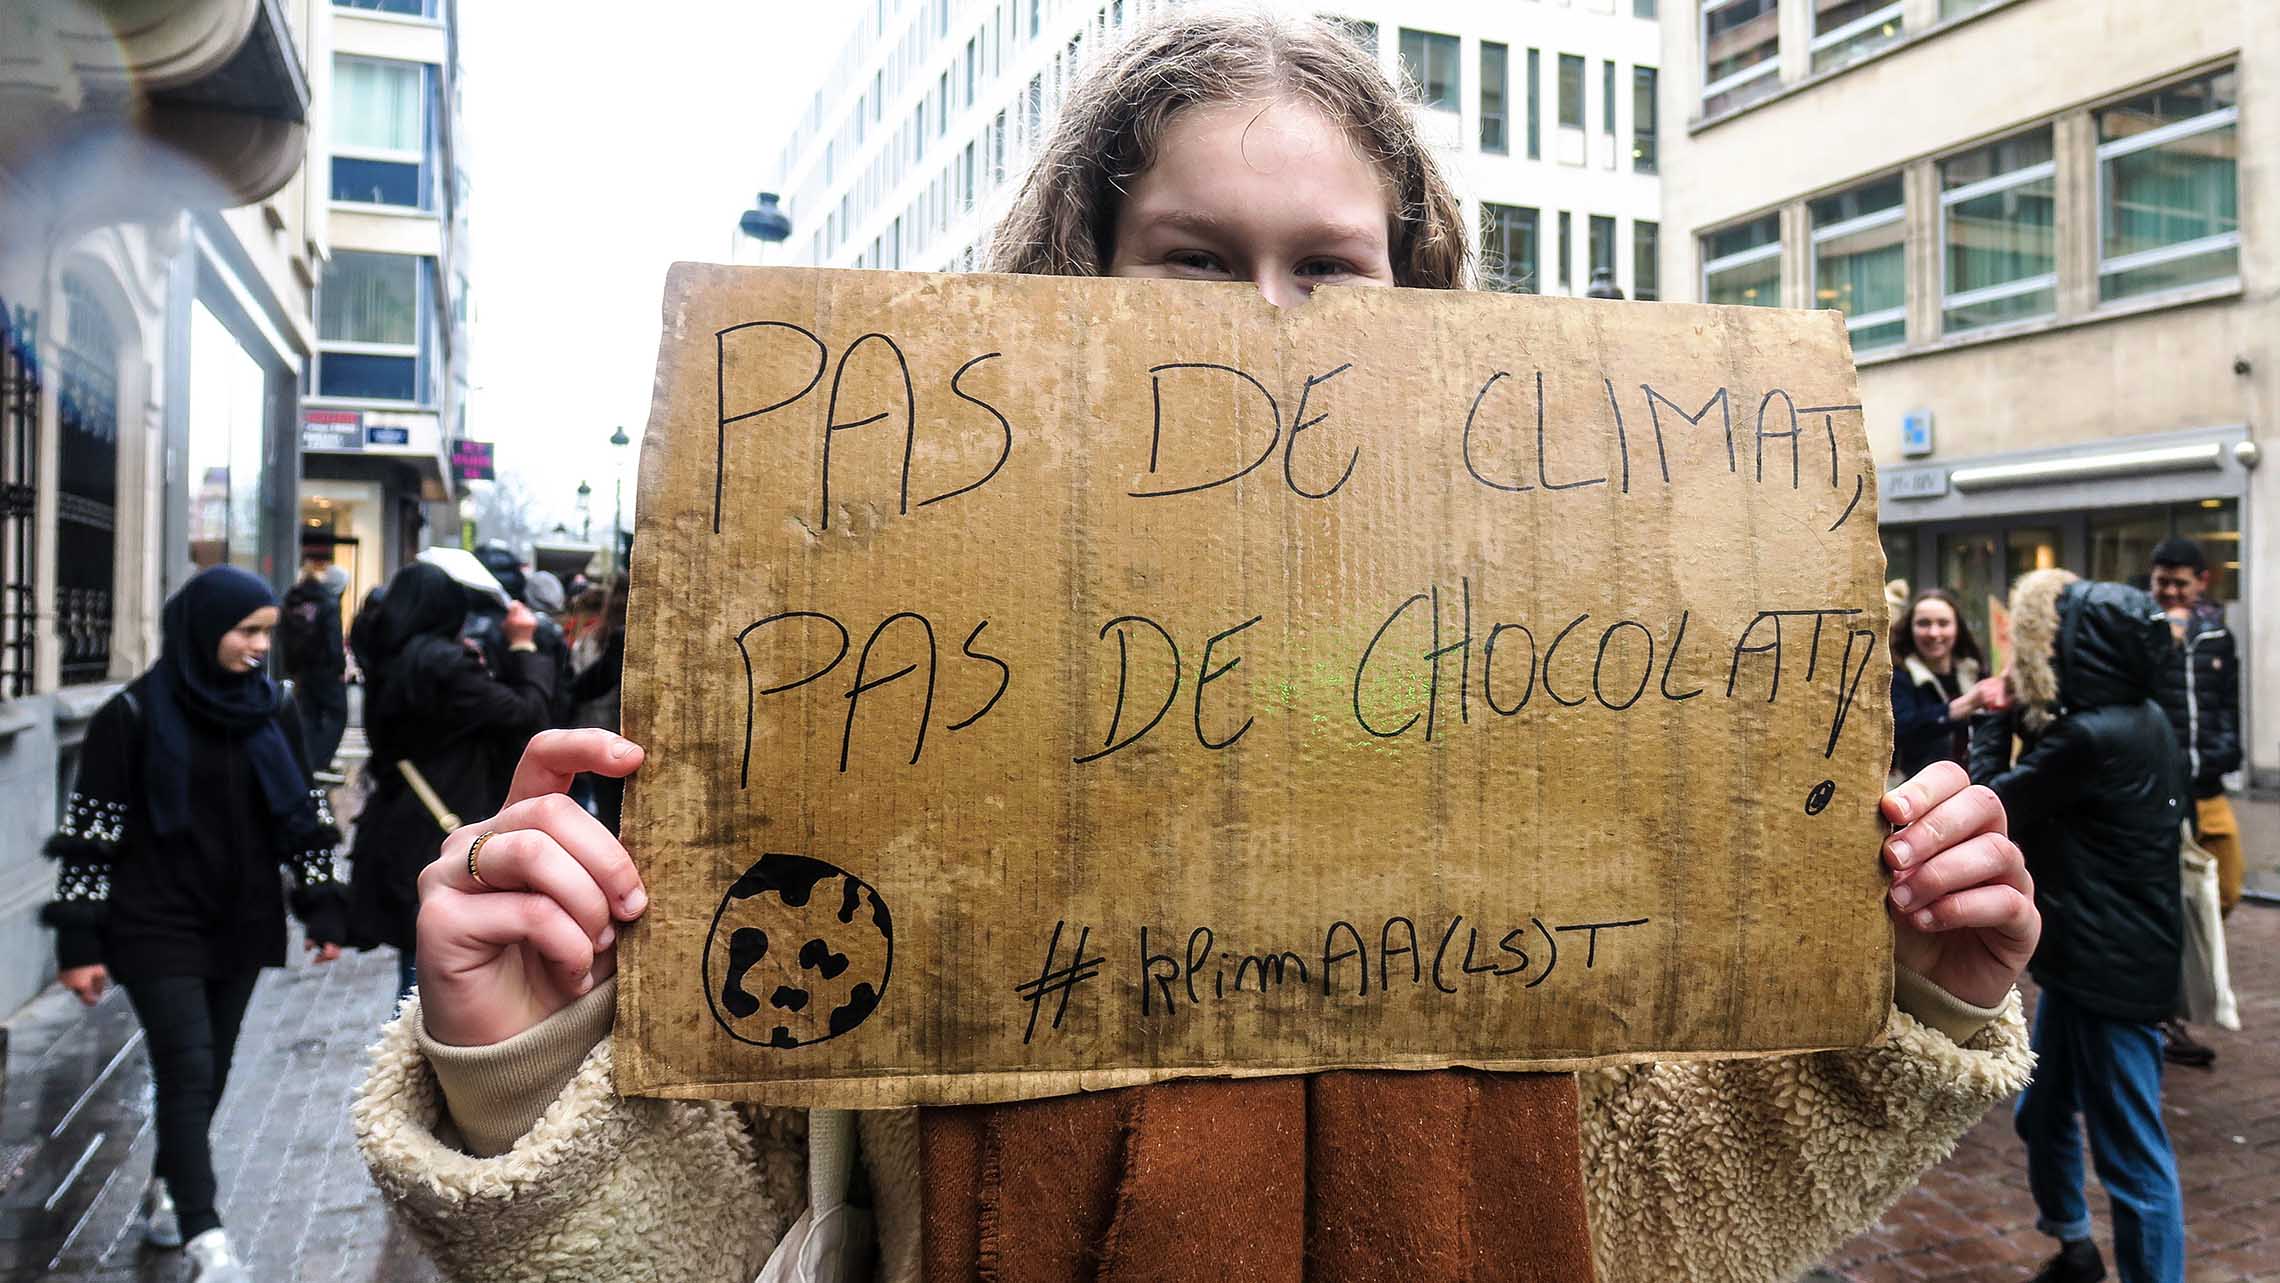 PAS DE CLIMAT,
PAS DE CHOCOLAT!
#klimAA(LS)T